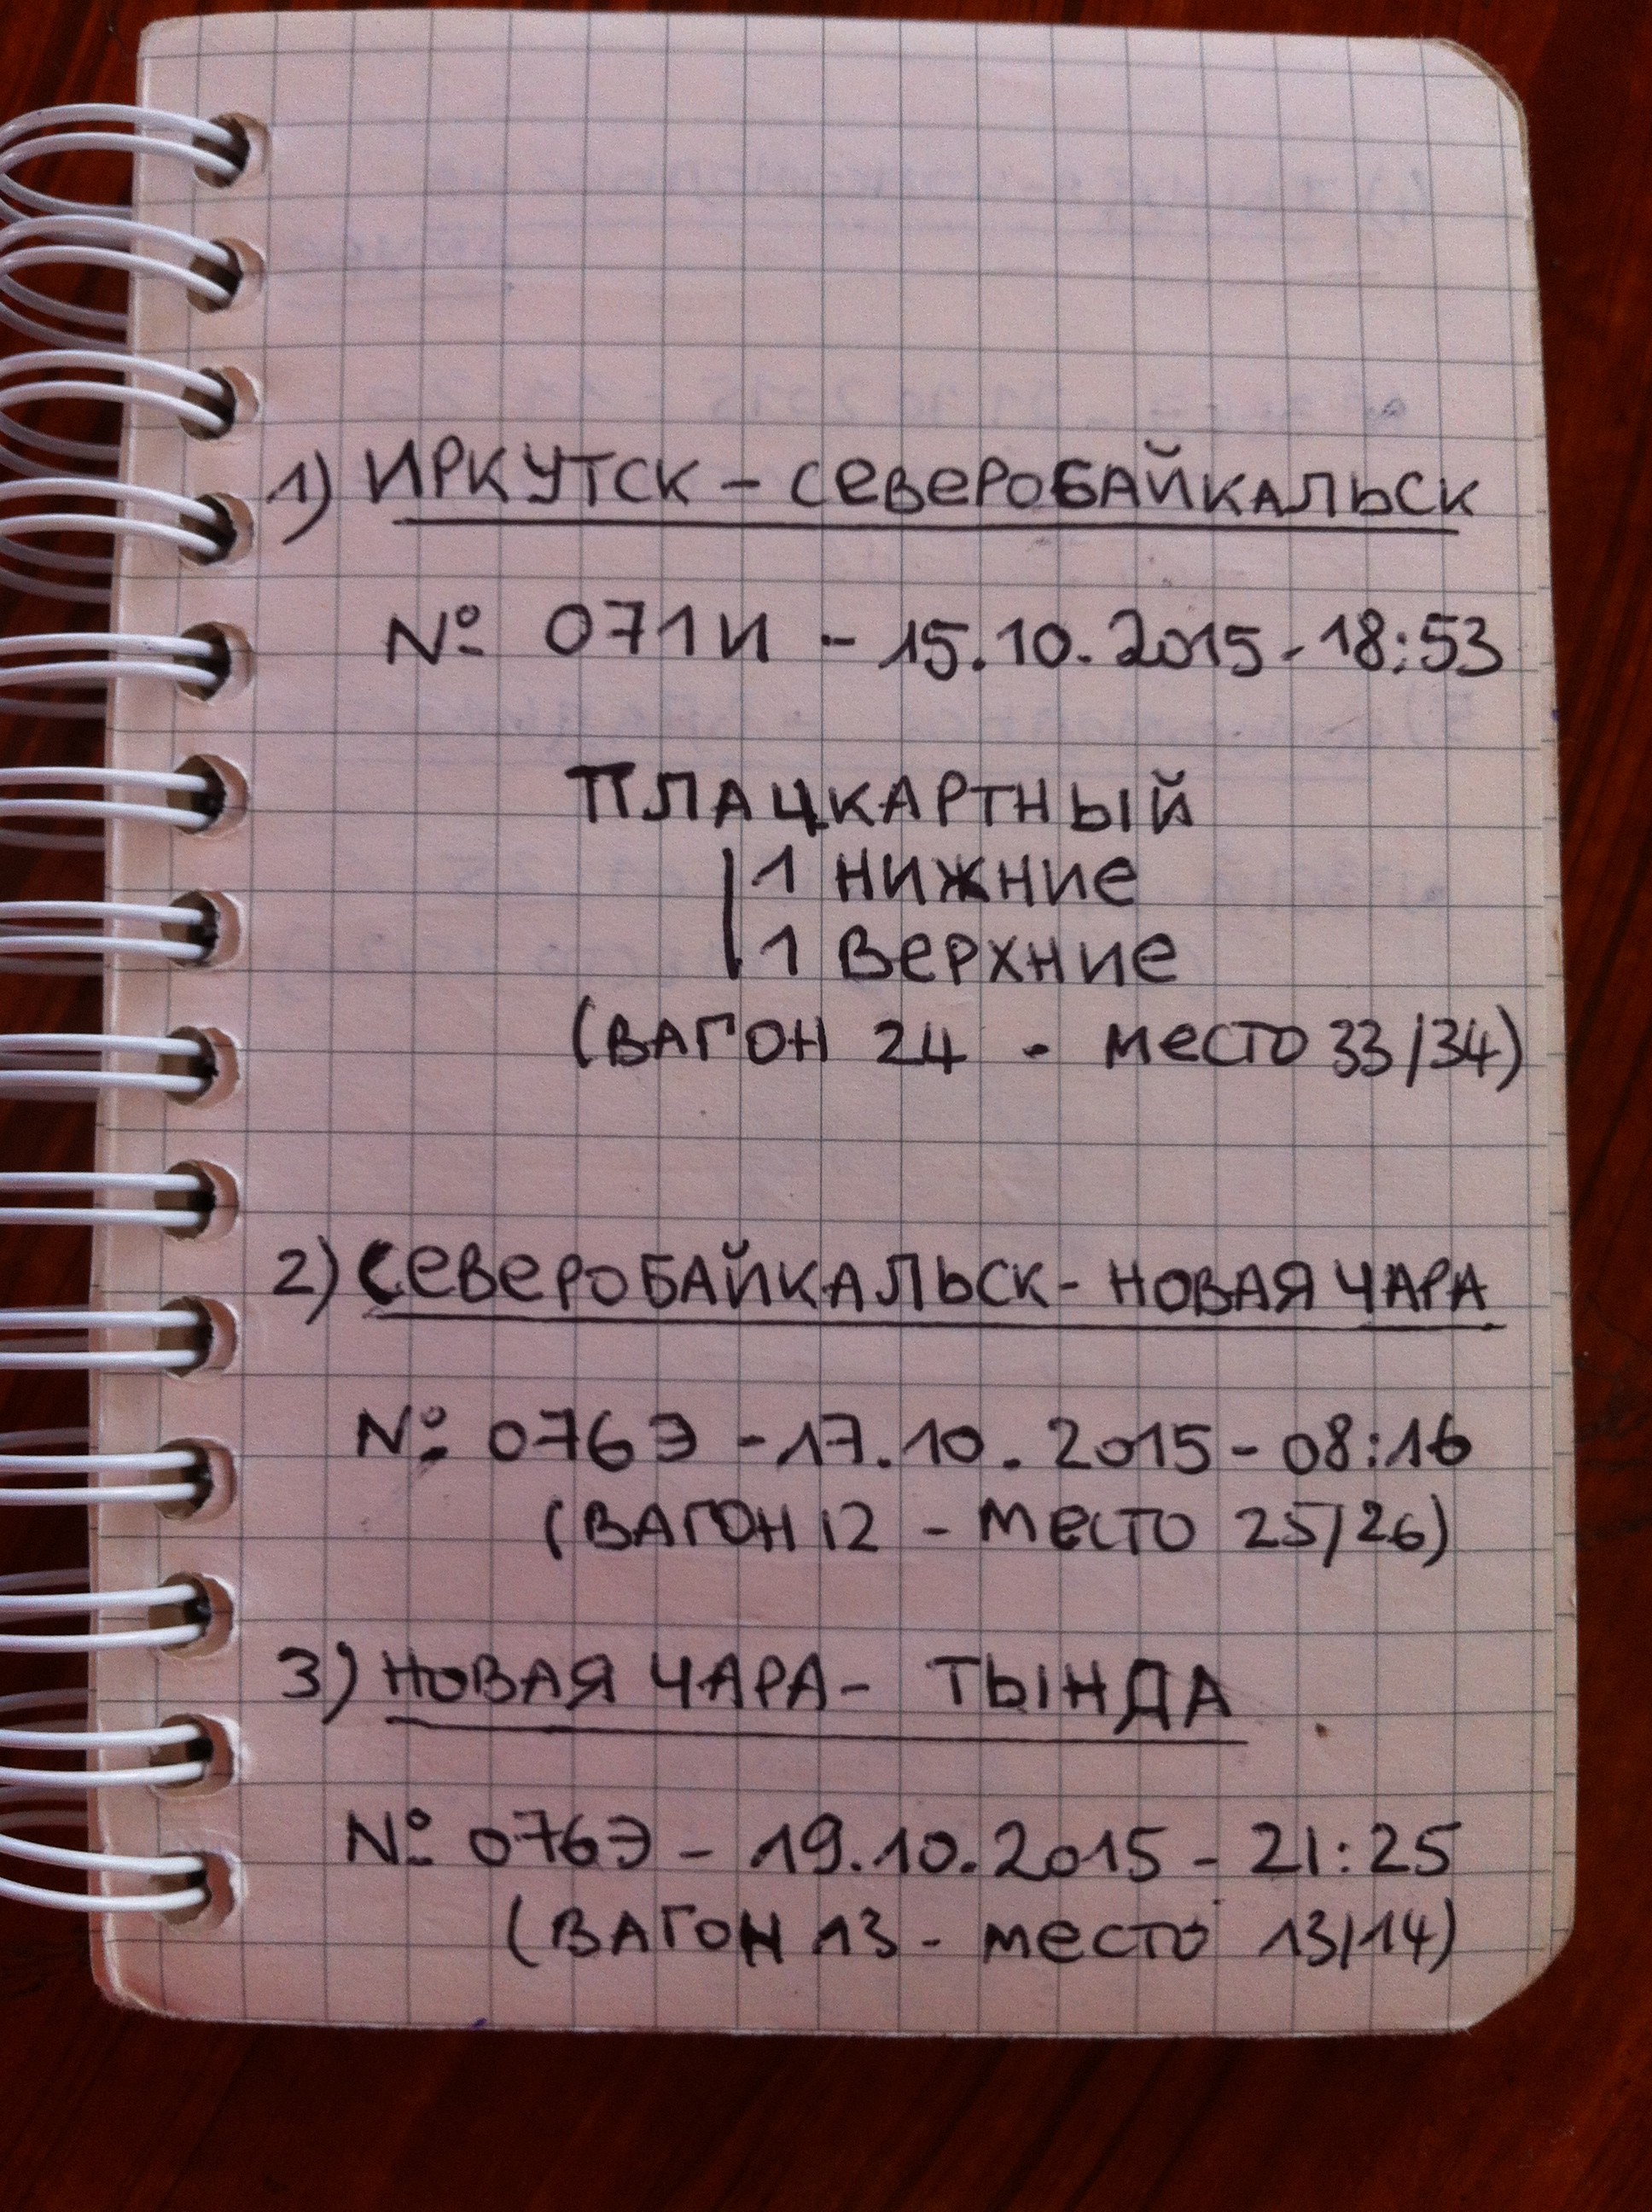 1) ИРКУТСК - СЕВЕРОБАЙКАЛЬСК
№ 071И - 15.10.2015 - 18:53
ПЛАЦКАРТНЫЙ
1 НИЖНИЕ
1 ВЕРХНИЕ
(ВАГОН 24 - МЕСТО 33/34)
2) СЕВЕРОБАЙКАЛЬСК - НОВАЯ ЧАРА
№ 076Э - 17.10.2015 - 08:16
(ВАГОН 12 - МЕСТО 25/26)
3) НОВАЯ ЧАРА - ТЫНДА
№ 076Э - 19.10.2015 - 21:25
(ВАГОН 13 - МЕСТО 13/14)